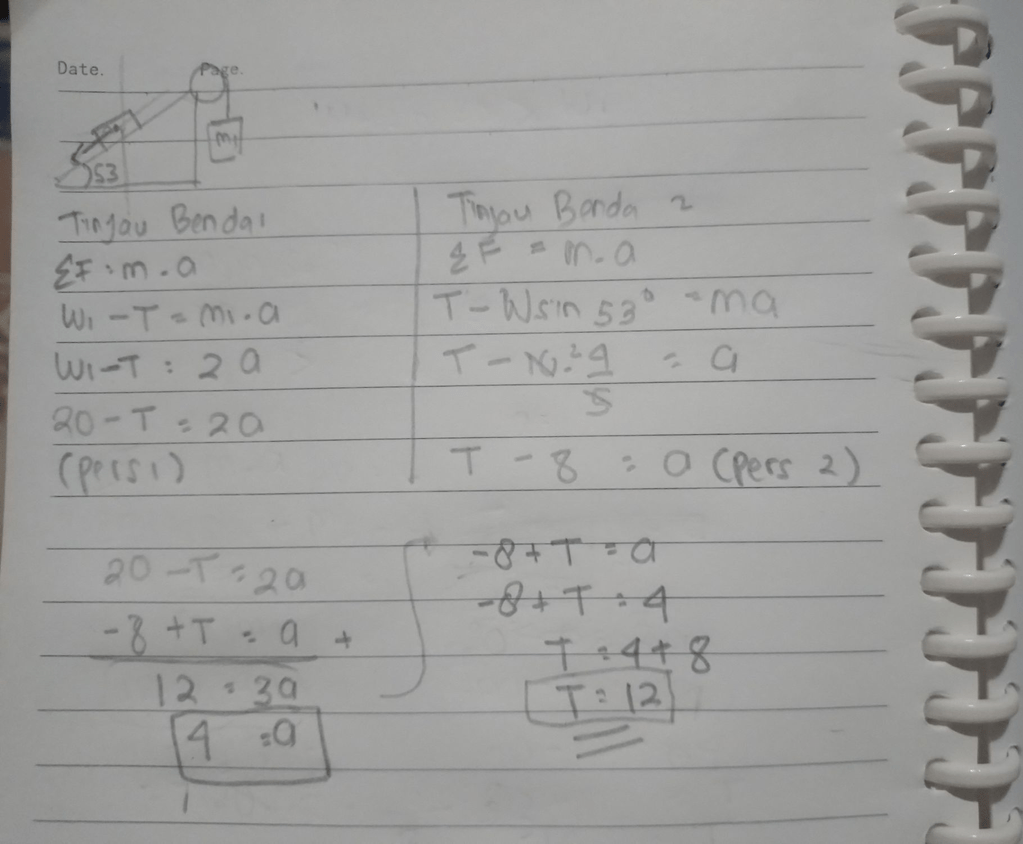 Date.
Page.
m1
53
Tinjau Benda 1
ΣF = m . a
W1 - T = m1 . a
W1 - T = 2a
20 - T = 2a
(pers 1)
Tinjau Benda 2
ΣF = m . a
T - W sin 53° = ma
T - 10.² 4 = a
5
T - 8 = a (pers 2)
20 - T = 2a
-8 + T = a +
12 = 3a
4 = a
-8 + T = a
-8 + T = 4
T = 4 + 8
T = 12